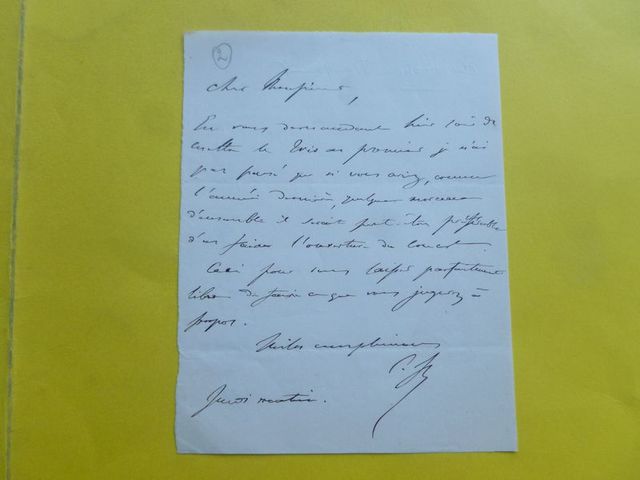 2
Cher Monsieur,
En vous demandant hier soir de
mettre le Trio en premier je n'ai
pas pensé que si vous aviez, comme
l'année dernière, quelques morceaux
d'ensemble il serait peut-être préférable
d'en faire l'ouverture du concert.
Ceci pour vous laisser parfaitement
libre de faire ce que vous jugerez à
propos.
Mille compliments
Jeudi matin.